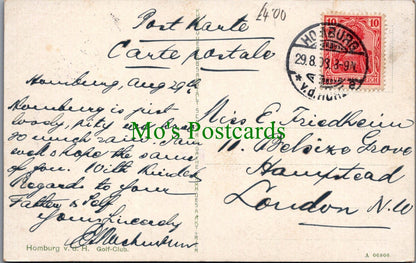 Post Karte
Carte postale
£4.00
10
HOMBURG
29.8.03.3-4N.
* v.d.HÖHE
Homburg, Aug 29th
Homburg is just
lovely, pity we have
so much rain. I am
well & hope the same
of you. With kindest
Regards to your
Father & self
yours sincerely
Miss E. Friedheim
11. Belsize Grove
Hampstead
London N.W
Mo's Postcards
Homburg v. d. H. Golf-Club.
A 06866